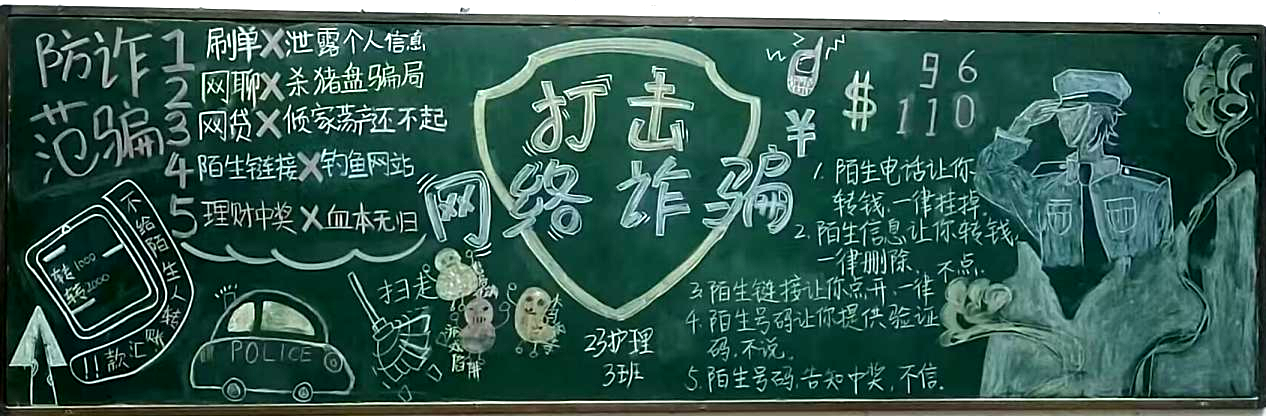 防诈
范骗
1 刷单✗泄露个人信息
2 网聊✗杀猪盘骗局
3 网贷✗倾家荡产还不起
4 陌生链接✗钓鱼网站
5 理财中奖✗血本无归
打击
网络诈骗
¥
$
96
110
1. 陌生电话让你
转钱,一律挂掉.
2. 陌生信息让你转钱,
一律删除.
3. 陌生链接让你点开,一律
不点.
4. 陌生号码让你提供验证
码,不说.
5. 陌生号码,告知中奖,不信.
不给陌生人转账
汇款!!
转1000
转2000
POLICE
扫走
陷阱
23护理
3班